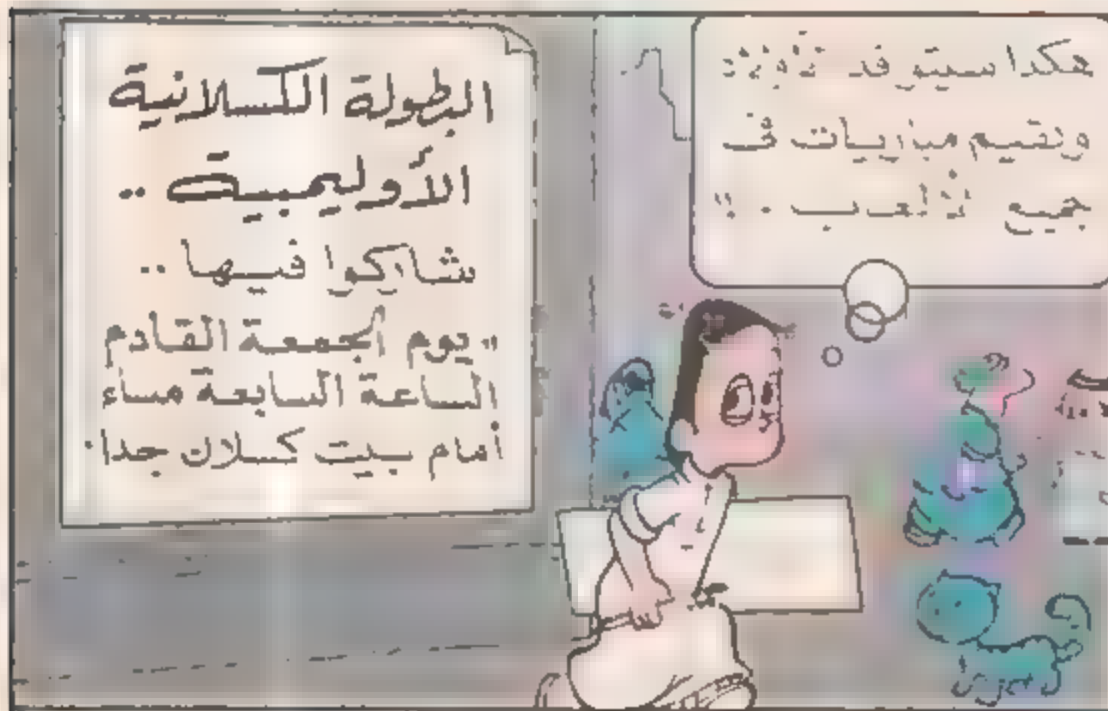 هكذا سيتوفد
ونقيم مباريات في
جميع الألعاب ..
البطولة الكسلانية
الأوليمبية ..
شاركوا فيها ..
"يوم الجمعة القادم
الساعة السابعة مساء
أمام بيت كسلان جدا.